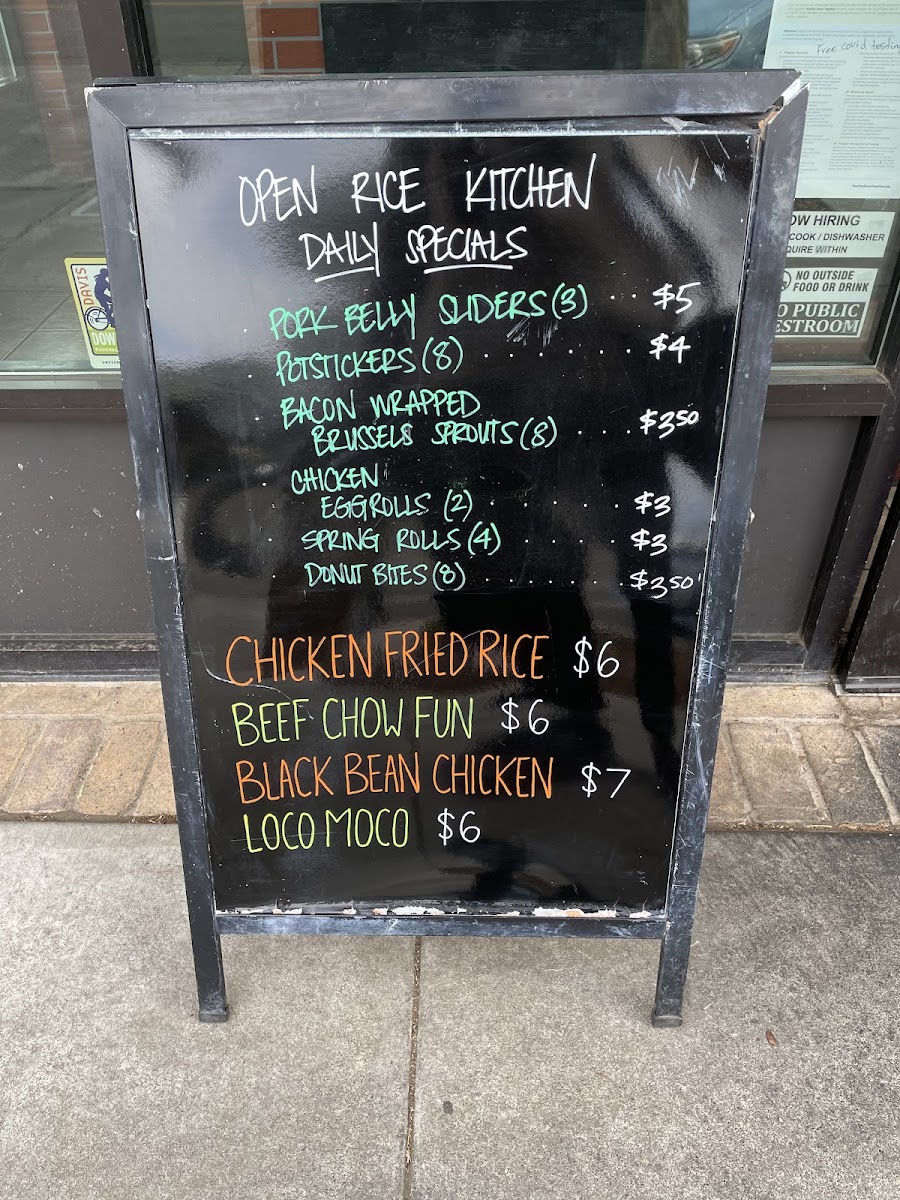 OPEN RICE KITCHEN
DAILY SPECIALS
PORK BELLY SLIDERS (3) $5
POTSTICKERS (8) $4
BACON WRAPPED
BRUSSELS SPROUTS (8) $3.50
CHICKEN
EGGROLLS (2) $3
SPRING ROLLS (4) $3
DONUT BITES (8) $3.50
CHICKEN FRIED RICE $6
BEEF CHOW FUN $6
BLACK BEAN CHICKEN $7
LOCO MOCO $6
Free covid testing
OW HIRING
COOK / DISHWASHER
QUIRE WITHIN
NO OUTSIDE
FOOD OR DRINK
O PUBLIC
ESTROOM
DAVIS
DOW